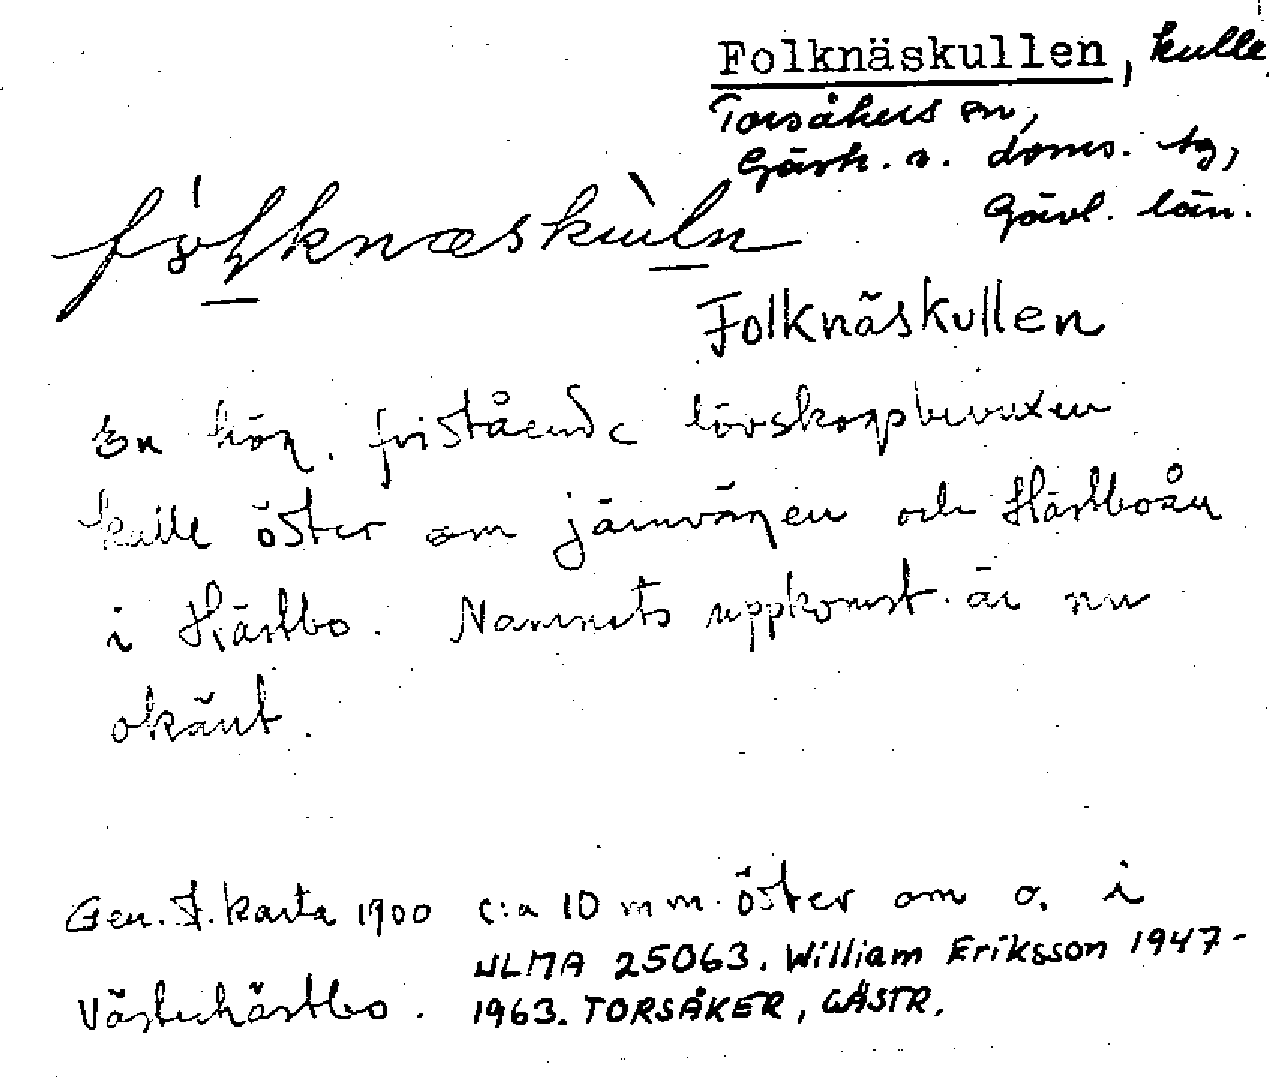 Folknäskullen, kulle
Torsåkers sn,
Gästr. ö. doms. tg,
Gävl. län.
Folknäskullen
En hög, fristående lövskogsbevuxen
kulle öster om järnvägen och Hästboån
i Hästbo. Namnets uppkomst är nu
okänt.
Gen. st. karta 1900 c:a 10 mm öster om o. i
ULMA 25063. William Eriksson 1947-
Västerhästbo. 1963. TORSÅKER, GÄSTR.